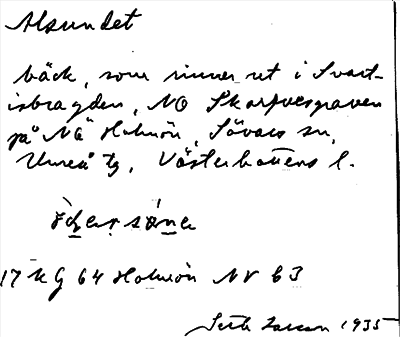 Alsundet
bäck, som rinner ut i Svart-
isbragden, NO Skarpvesgraven
på Na Holmön, Sävars sn,
Umeå tg, Västerbottens l.
17 NG 64 Holmön NV 63
Seth Larsson 1935